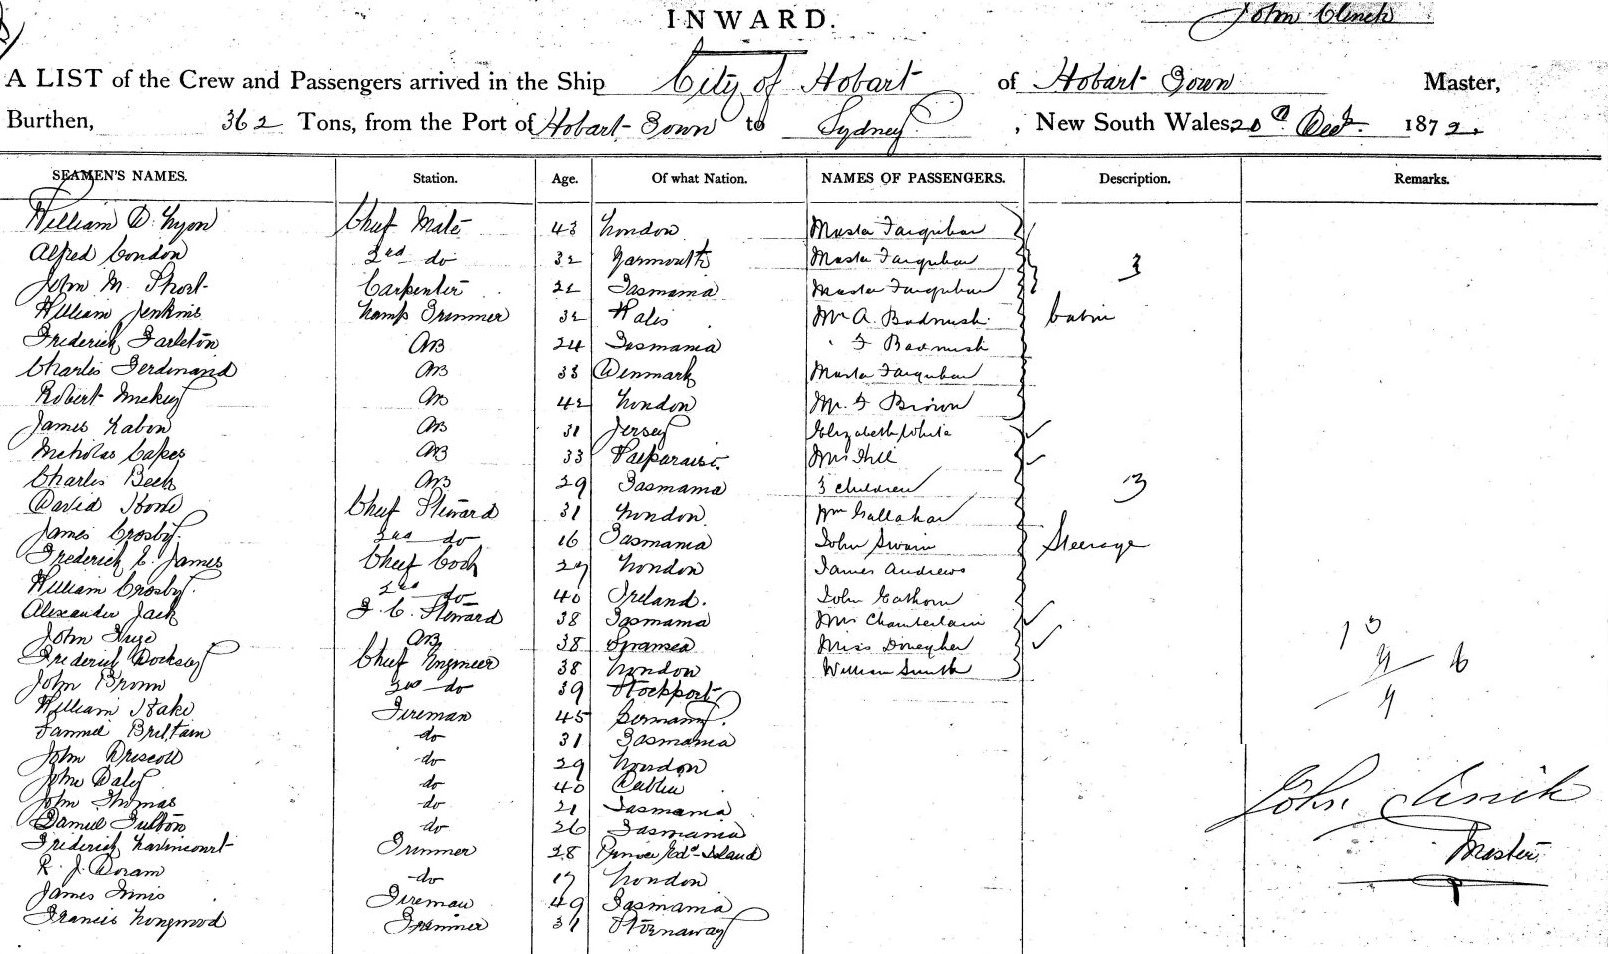 INWARD.
John Clinch
A LIST of the Crew and Passengers arrived in the Ship City of Hobart of Hobart Town Master,
Burthen, 362 Tons, from the Port of Hobart Town to Sydney, New South Wales 20th Decr. 1872.
SEAMEN'S NAMES. Station. Age. Of what Nation. NAMES OF PASSENGERS. Description. Remarks.
William D. Lyon Chief Mate 43 London Master Farquhar
Alfred Condon 2nd do 32 Yarmouth Master Farquhar 3
John M. Short Carpenter 22 Tasmania Master Farquhar
William Jenkins Lamp Trimmer 32 Wales Mr A. Cabin
Frederick Tarleton AB 24 Tasmania F
Charles Ferdinand AB 33 Denmark Master Farquhar
Robert AB 42 London Mr. F Brown
James AB 31 Jersey Elizabeth White
Nicholas Capes AB 33 Valparaiso Mrs Hill
Charles Beck AB 29 Tasmania 3 children 3
David Chief Steward 31 London Wm Gallahar
James Crosby. 2nd do 16 Tasmania John Swain Steerage
Frederick E. James Chief Cook 27 London James Andrews
William Crosby. 2nd do 40 Ireland. John
Alexander Jack F. C. Steward 38 Tasmania Mrs Chamberlain
John AB 38 Swansea Miss
Frederick Chief Engineer 38 London William Smith
John Brown 2nd do 39 Stockport
William Fireman 45 Germany.
Samuel Brittain do 31 Tasmania
John Driscoll do 29 London
John Daly do 40 Dublin
John Thomas do 21 Tasmania
Samuel Fulton do 26 Tasmania
Frederick Trimmer 28 Prince Edd. Island
R. J. Doram do 17 London
James Innis Fireman 49 Tasmania
Francis Longwood Trimmer 31 Stornaway
John Clinch
Master